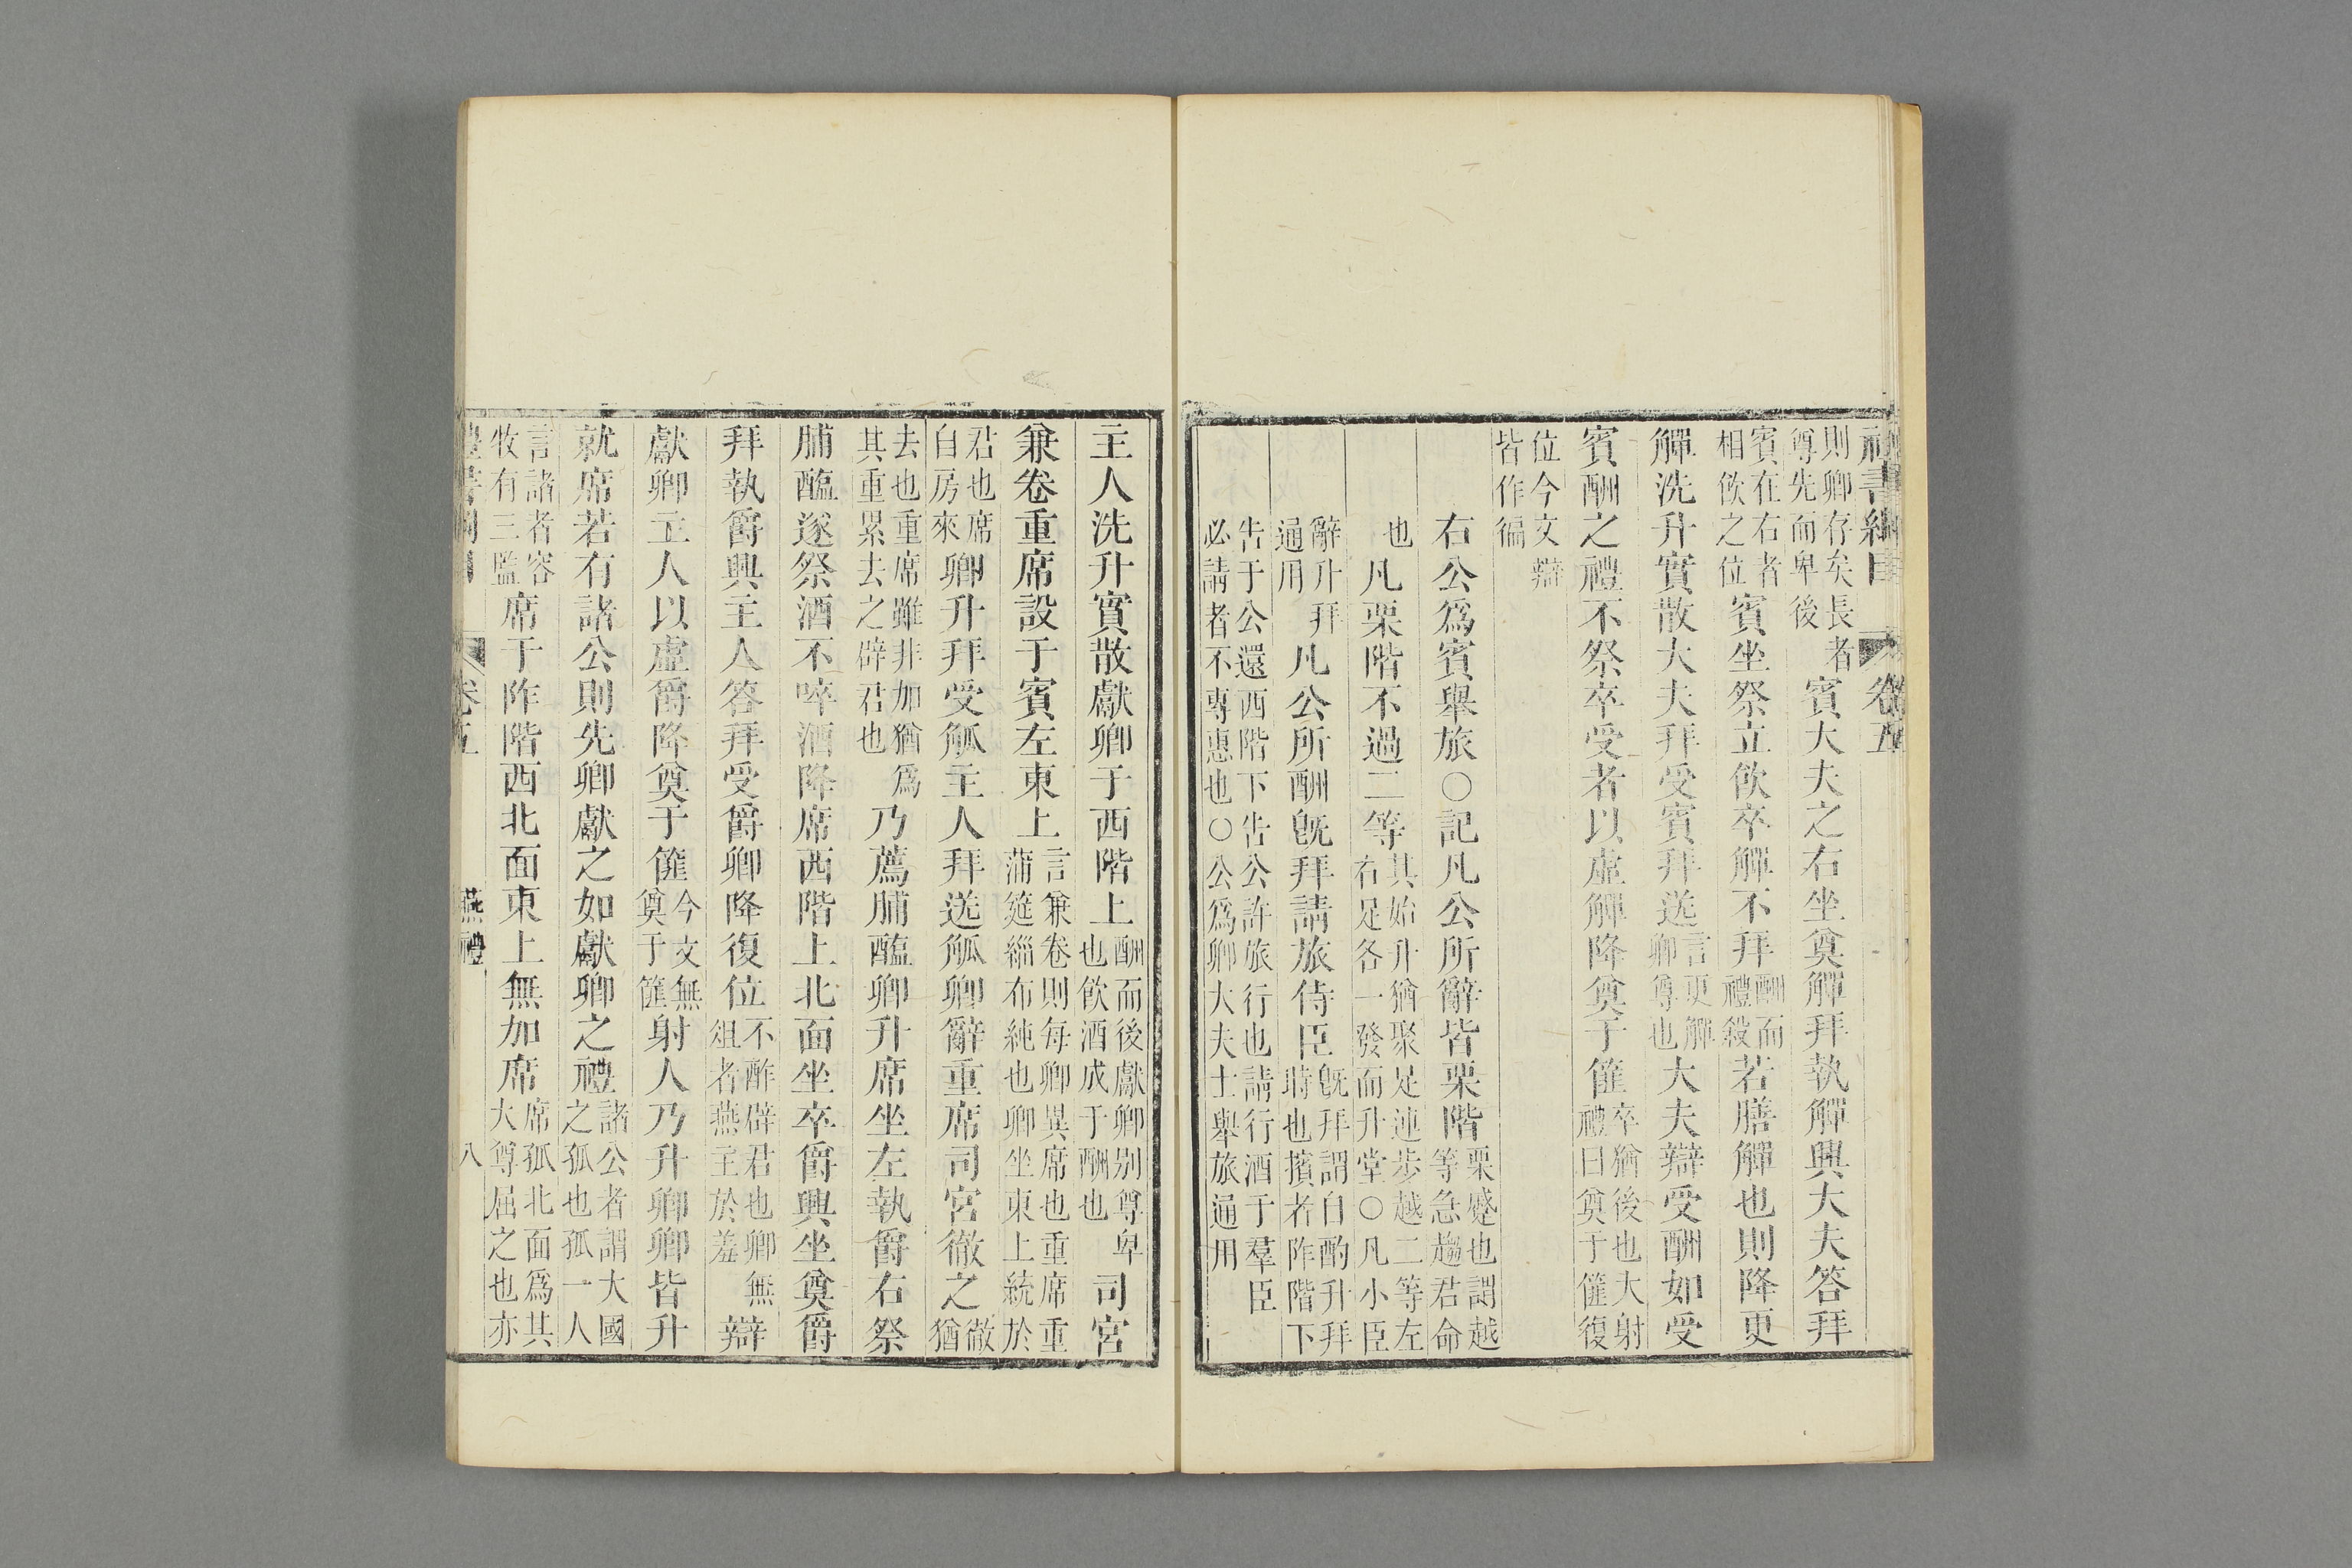 禮書綱目　卷五
則卿存矣長者
尊先而卑後
賓大夫之右坐奠觶拜執觶興大夫答拜
賓在右者
相飲之位
賓坐祭立飲卒觶不拜
酬而
禮殺
若膳觶也則降更
觶洗升實散大夫拜受賓拜送
言更觶
卿尊也
大夫辯受酬如受
賓酬之禮不祭卒受者以虛觶降奠于篚
卒猶後也大射
禮曰奠于篚復
位今文辯
皆作徧
右公爲賓舉旅○記凡公所辭皆栗階
栗蹙也謂越
等急趨君命
也
凡栗階不過二等
其始升猶聚足連步越二等左
右足各一發而升堂○凡小臣
辭升拜
通用
凡公所酬旣拜請旅侍臣
旣拜謂自酌升拜
時也擯者阼階下
告于公還西階下告公許旅行也請行酒于羣臣
必請者不專惠也○公爲卿大夫士舉旅通用
主人洗升實散獻卿于西階上
酬而後獻卿別尊卑
也飮酒成于酬也
司宮
兼卷重席設于賓左東上
言兼卷則每卿異席也重席重
蒲筵緇布純也卿坐東上統於
君也席
自房來
卿升拜受觚主人拜送觚卿辭重席司宮徹之
徹猶
去也重席雖非加猶爲
其重累去之辟君也
乃薦脯醢卿升席坐左執爵右祭
脯醢遂祭酒不啐酒降席西階上北面坐卒爵興坐奠爵
拜執爵興主人答拜受爵卿降復位
不酢辟君也卿無
俎者燕主於羞
辯
獻卿主人以虛爵降奠于篚
今文無
奠于篚
射人乃升卿卿皆升
就席若有諸公則先卿獻之如獻卿之禮
諸公者謂大國
之孤也孤一人
言諸者容
牧有三監
席于阼階西北面東上無加席
席孤北面爲其
大尊屈之也亦
禮書綱目　卷五　燕禮　八